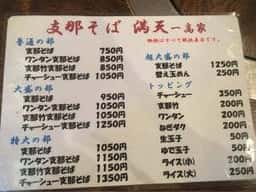 支那そば 満天 一高家
価格はすべて税抜表示です。
普通の部
支那そば 750円
ワンタン支那そば 850円
支那竹支那そば 850円
チャーシュー支那そば 1050円
大盛の部
支那そば 950円
ワンタン支那そば 1050円
支那竹支那そば 1050円
チャーシュー支那そば 1250円
特大の部
支那そば 1050円
ワンタン支那そば 1150円
支那竹支那そば 1150円
チャーシュー支那そば 1350円
超大盛の部
支那そば 1250円
替え玉めん 250円
トッピング
チャーシュー 350円
支那竹 200円
ワンタン 200円
ねぎダク 200円
生玉子 50円
ゆで玉子 50円
ライス(小) 200円
ライス(大) 250円